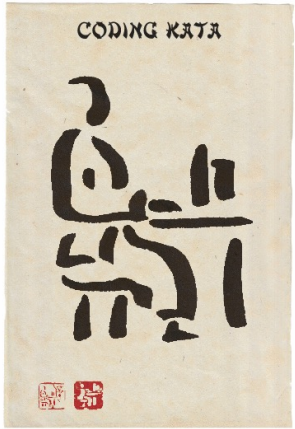 CODING KATA